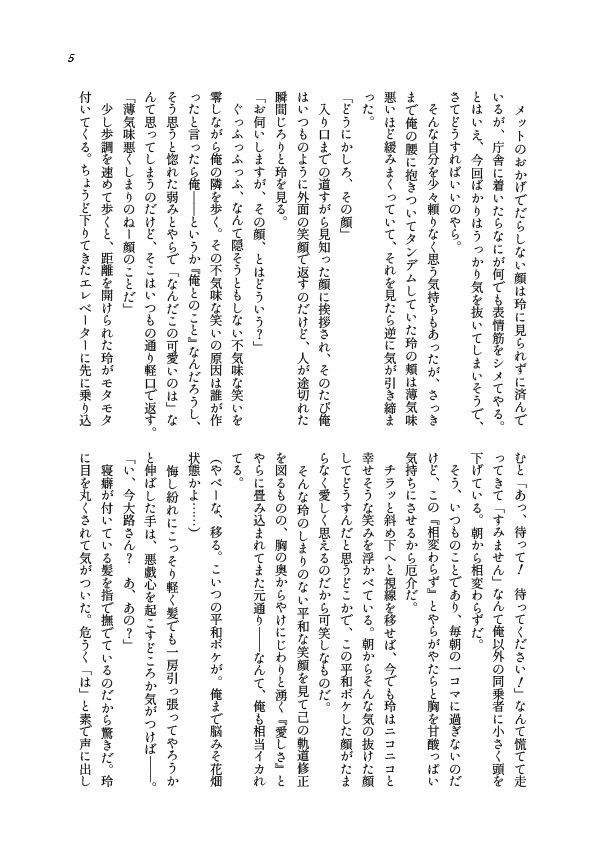 5
メットのおかげでだらしない顔は玲に見られずに済んで
いるが、庁舎に着いたらなにが何でも表情筋をシメてやる。
とはいえ、今回ばかりはうっかり気を抜いてしまいそうで、
さてどうすればいいのやら。
そんな自分を少々頼りなく思う気持ちもあったが、さっき
まで俺の腰に抱きついてタンデムしていた玲の頬は薄気味
悪いほど緩みまくっていて、それを見たら逆に気が引き締ま
った。
「どうにかしろ、その顔」
入り口までの道すがら見知った顔に挨拶され、そのたび俺
はいつものように外面の笑顔で返すのだけど、人が途切れた
瞬間じろりと玲を見る。
「お伺いしますが、その顔、とはどういう？」
ぐっふっふっふ、なんて隠そうともしない不気味な笑いを
零しながら俺の隣を歩く。その不気味な笑いの原因は誰が作
ったと言ったら俺――というか『俺とのこと』なんだろうし、
そう思うと惚れた弱みとやらで「なんだこの可愛いのは」な
んて思ってしまうのだけど、そこはいつもの通り軽口で返す。
「薄気味悪くしまりのねー顔のことだ」
少し歩調を速めて歩くと、距離を開けられた玲がモタモタ
付いてくる。ちょうど下りてきたエレベーターに先に乗り込
むと「あっ、待って！　待ってください！」なんて慌てて走
ってきて「すみません」なんて俺以外の同乗者に小さく頭を
下げている。朝から相変わらずだ。
そう、いつものことであり、毎朝の一コマに過ぎないのだ
けど、この『相変わらず』とやらがやたらと胸を甘酸っぱい
気持ちにさせるから厄介だ。
チラッと斜め下へと視線を移せば、今でも玲はニコニコと
幸せそうな笑みを浮かべている。朝からそんな気の抜けた顔
してどうすんだと思うどこかで、この平和ボケした顔がたま
らなく愛しく思えるのだから可笑しなものだ。
そんな玲のしまりのない平和な笑顔を見て己の軌道修正
を図るものの、胸の奥からやけにじわりと湧く『愛しさ』と
やらに畳み込まれてまた元通り――なんて、俺も相当イカれ
てる。
（やべーな、移る。こいつの平和ボケが。俺まで脳みそ花畑
状態かよ……）
悔し紛れにこっそり軽く髪でも一房引っ張ってやろうか
と伸ばした手は、悪戯心を起こすどころか気がつけば――。
「い、今大路さん？　あ、あの？」
寝癖が付いている髪を指で撫でているのだから驚きだ。玲
に目を丸くされて気がついた。危うく「は」と素で声に出し